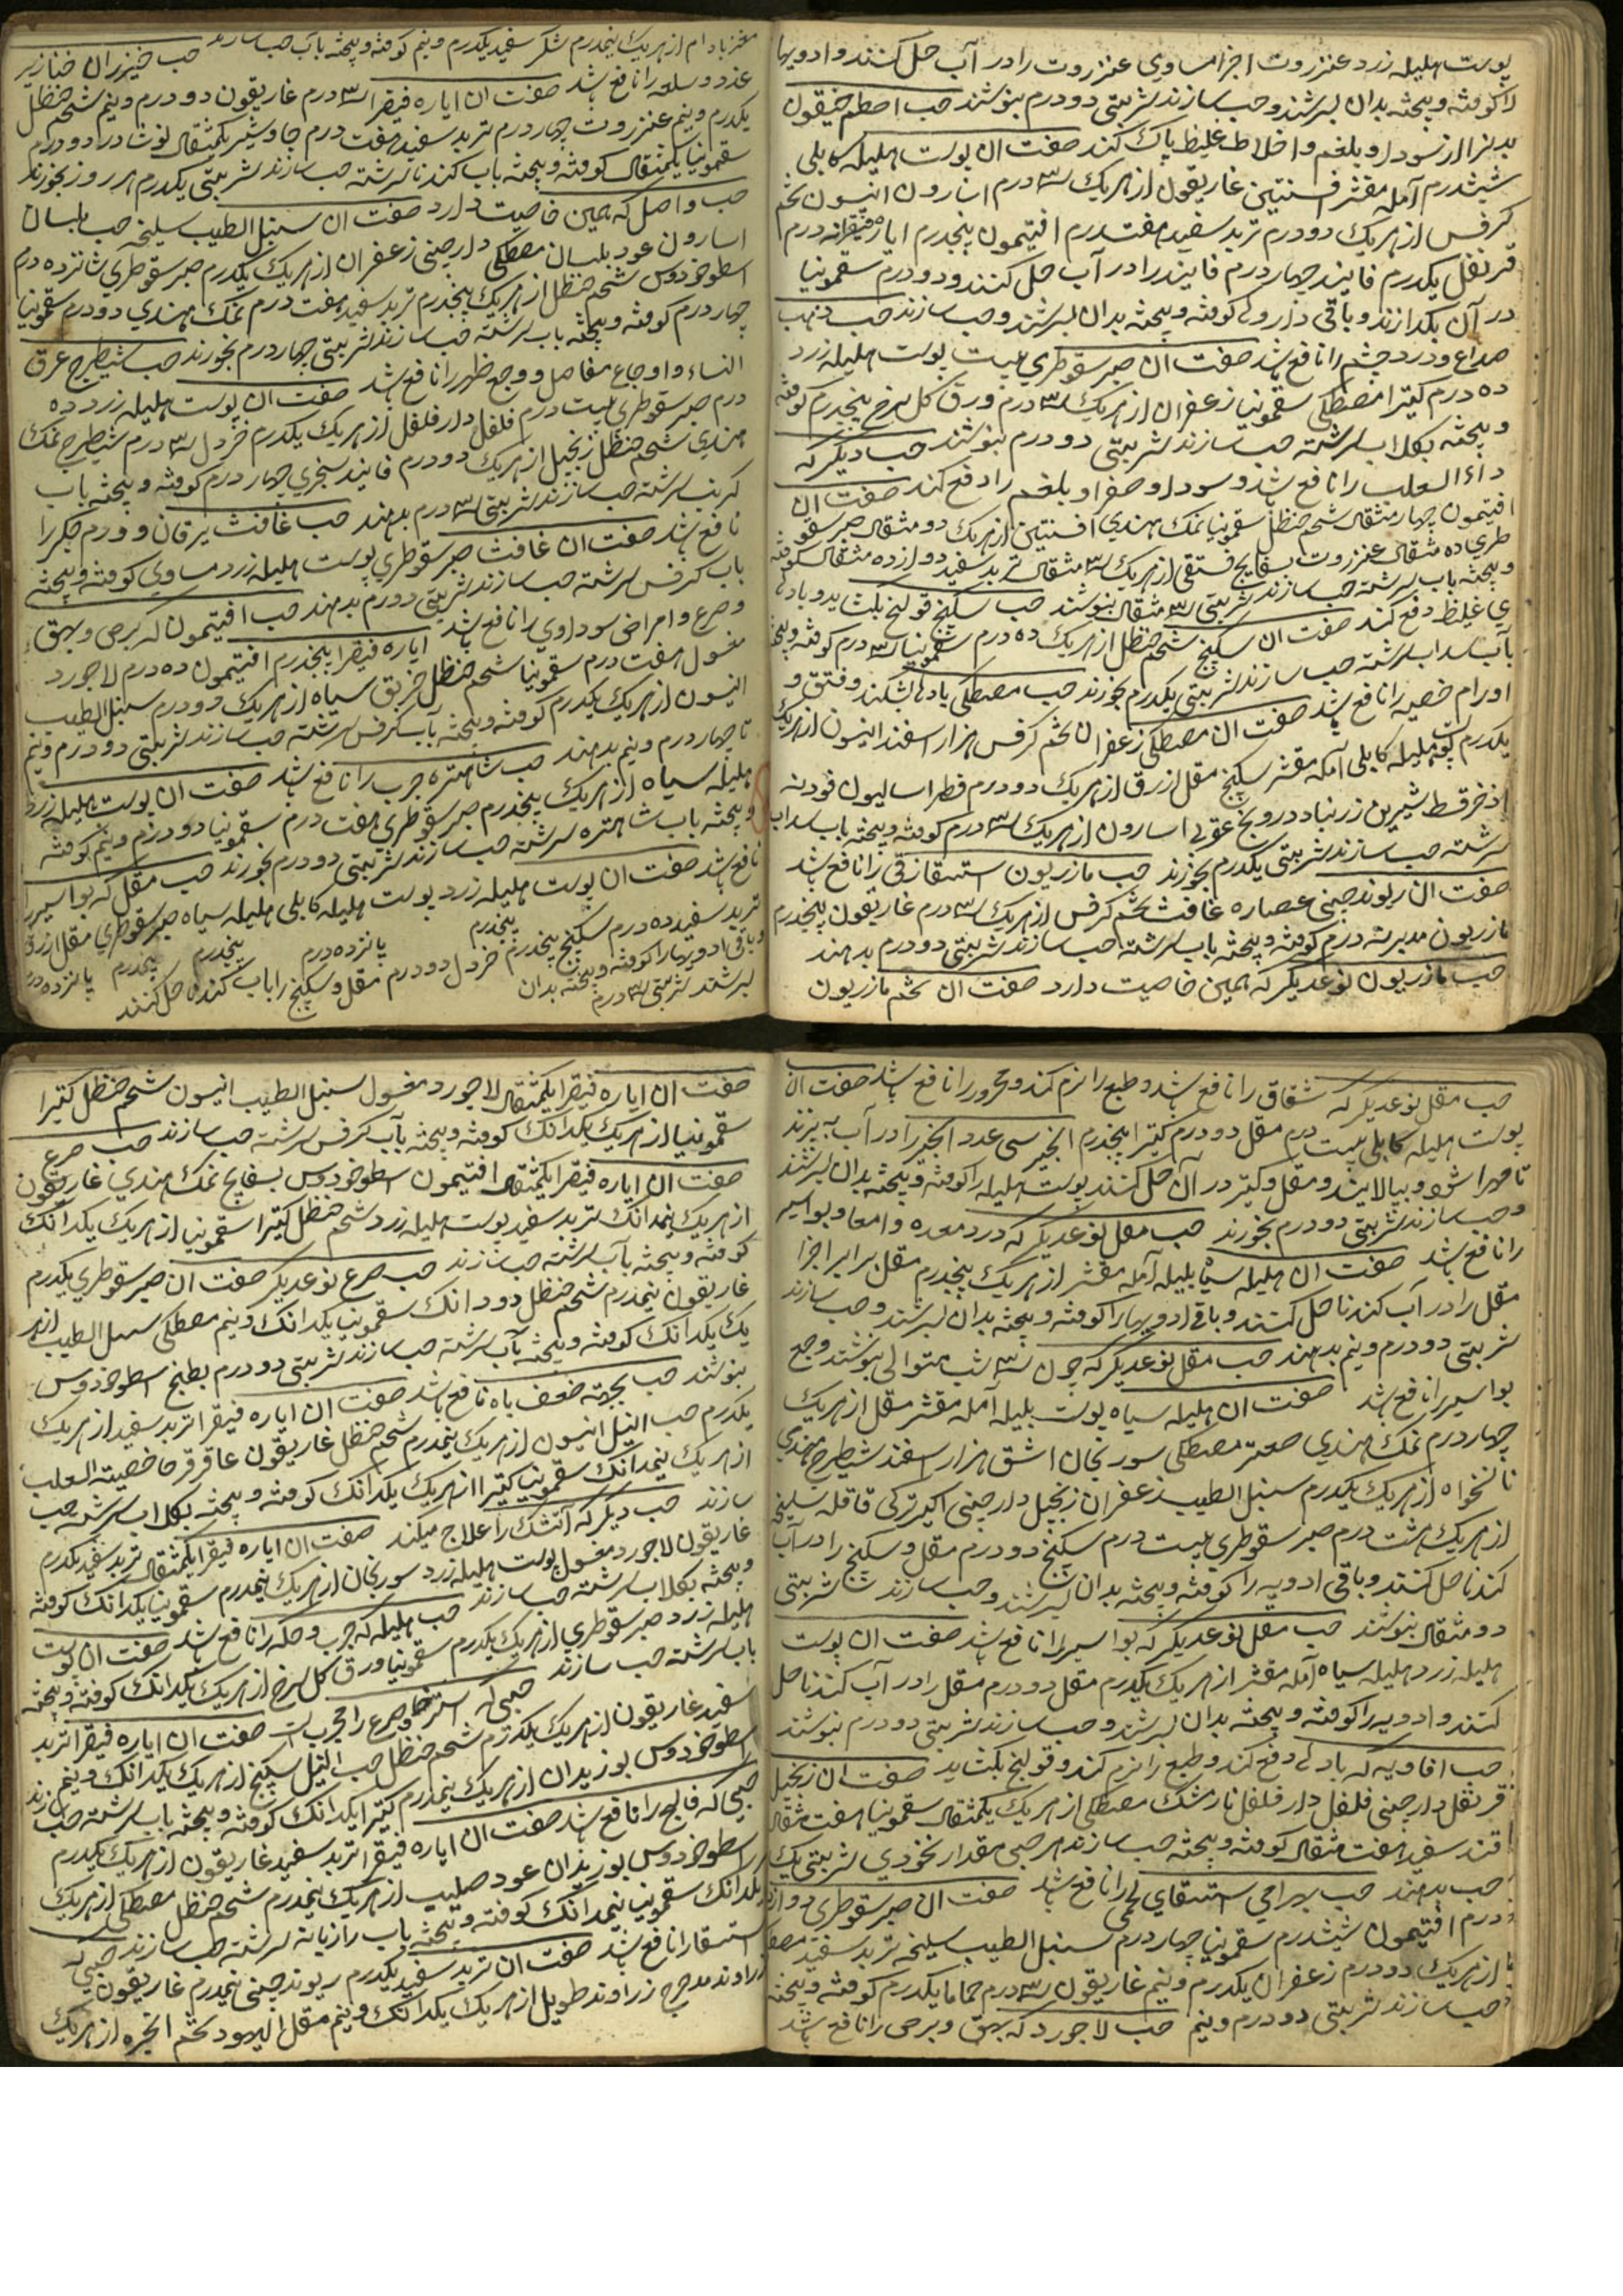 پوست هلیله زرد عنزروت اجزا مساوی عنزروت را در آب حل کنند و ادویها
را کوفته و پیخته بدان بسرشند و حب سازند شربتی دو درم بنوشند حب اصطمخیقون
بدنرا از سودا و بلغم و اخلاط غلیظ پاک کند صفت ان پوست هلیله کابلی
ششدرم آمله مقشر افسنتین غاریقون از هریک ۳ درم اسارون انیسون تخم
کرفس از هریک دو درم تربد سفید هفتدرم افتیمون پنجدرم ایاره فیقرا نه درم
قرنفل یکدرم فانیذ چهار درم فانیذ را در آب حل کنند و دو درم سقمونیا
در آن بکدازند و باقی داروها کوفته و پیخته بدان بسرشند و حب سازند حب ذهب
صداع و درد چشم را نافع باشد صفت ان صبر سقوطری بیست پوست هلیله زرد
ده درم کتیرا مصطکی سقمونیا زعفران از هریک ۳ درم ورق کل سرخ پنجدرم کوفته
و پیخته بکلاب سرشته حب سازند شربتی دو درم بنوشند حب دیکر که
داء الثعلب را نافع باشد و سودا و صفرا و بلغم را دفع کند صفت ان
افتیمون چهار مثقال شحم حنظل سقمونیا نمک هندی افسنتین از هریک دو مثقال صبر سقو
طری ده مثقال عنزروت بسفایج فستقی از هریک ۳ مثقال تربد سفید دوازده مثقال کوفته
و پیخته باب سرشته حب سازند شربتی ۳ مثقال بنوشند حب سکبینج قولنج بکشاید و بادها
ی غلیظ دفع کند صفت ان سکبینج شحم حنظل از هریک ده درم سقمونیا ۳ درم کوفته و پیخته
بآب سداب سرشته حب سازند شربتی یکدرم بخورند حب مصطکی بادها بشکند و فتق و
اورام خصیه را نافع باشد صفت ان مصطکی زعفران تخم کرفس هزار اسفند انیسون از هریک
یکدرم پوست هلیله کابلی آمله مقشر سکبینج مقل ازرق از هریک دو درم فطراسالیون فودنه
اذخر قسط شیرین زرنباد درونج عقربی اسارون از هریک ۳ درم کوفته و پیخته باب سداب
سرشته حب سازند شربتی یکدرم بخورند حب مازریون استسقا زقی را نافع باشد
صفت ان ریوند چینی عصاره غافث تخم کرفس از هریک ۳ درم غاریقون پنجدرم
مازریون مدبر سه درم کوفته و پیخته باب سرشته حب سازند شربتی دو درم بدهند
حب مازریون نوعدیکر که همین خاصیت دارد صفت ان تخم مازریون
مغز بادام از هریک پنجدرم شکر سفید یکدرم و نیم کوفته و پیخته باب حب سازند حب خیزران خنازیر
غدد و سلعه را نافع باشد صفت ان ایاره فیقرا ۳ درم غاریقون دو درم و نیم شحم حنظل
یکدرم و نیم عنزروت چهار درم تربد سفید هفت درم جاوشیر یکمثقال نوشادر دو درم
سقمونیا یکمثقال کوفته و پیخته باب کندنا سرشته حب سازند شربتی یکدرم هر روز بخورند
حب واصل که همین خاصیت دارد صفت ان سنبل الطیب سلیخه حب بلسان
اسارون عود بلسان مصطکی دارچینی زعفران از هریک یکدرم صبر سقوطری شانزده درم
اسطوخودوس شحم حنظل از هریک پنجدرم تربد سفید هفت درم نمک هندی دو درم سقمونیا
چهار درم کوفته و پیخته باب سرشته حب سازند شربتی چهار درم بخورند حب شیطرج عرق
النساء و اوجاع مفاصل و وجع ظهر را نافع باشد صفت ان پوست هلیله زرد ده
درم صبر سقوطری بیست درم فلفل دارفلفل از هریک یکدرم خردل ۳ درم شیطرج نمک
هندی شحم حنظل زنجبیل از هریک دو درم فانیذ سنجری چهار درم کوفته و پیخته باب
کرنب سرشته حب سازند شربتی ۳ درم بدهند حب غافث یرقان و ورم جکر را
نافع باشد صفت ان غافث صبر سقوطری پوست هلیله زرد مساوی کوفته و پیخته
باب کرفس سرشته حب سازند شربتی دو درم بدهند حب افتیمون که برص و بهق
و صرع و امراض سوداوی را نافع باشد ایاره فیقرا پنجدرم افتیمون ده درم لاجورد
مغسول هفت درم سقمونیا شحم حنظل خربق سیاه از هریک دو درم سنبل الطیب
انیسون از هریک یکدرم کوفته و پیخته بآب کرفس سرشته حب سازند شربتی دو درم و نیم
تا چهار درم و نیم بدهند حب شاهتره جرب را نافع باشد صفت ان پوست هلیله زرد
هلیله سیاه از هریک پنجدرم صبر سقوطری هفت درم سقمونیا دو درم و نیم کوفته
و پیخته باب شاهتره سرشته حب سازند شربتی دو درم بخورند حب مقل که بواسیر را
نافع باشد صفت ان پوست هلیله زرد پوست هلیله کابلی هلیله سیاه صبر سقوطری مقل ازرق
پنجدرم پانزده درم پنجدرم پنجدرم پانزده درم
تربد سفید ده درم سکبینج پنجدرم خردل دو درم مقل و سکبینج را باب کندنا حل کنند
و باقی ادویها را کوفته و پیخته بدان
بسرشند شربتی ۳ درم
حب مقل نوعدیکر که شقاق را نافع باشد و طبع را نرم کند و محرور را نافع باشد صفت ان
پوست هلیله کابلی بیست درم مقل دو درم کتیرا پنجدرم انجیر سی عدد انجیر را در آب بپزند
تا مهرا شود و بپالایند و مقل و کتیرا در آن حل کنند پوست هلیله را کوفته و پیخته بدان بسرشند
و حب سازند شربتی دو درم بخورند حب مقل نوعدیکر که درد معده و امعا و بواسیر
را نافع باشد صفت ان هلیله سیاه بلیله آمله مقشر از هریک پنجدرم مقل برابر اجزا
مقل را در آب کندنا حل کنند و باقی ادویها را کوفته و پیخته بدان بسرشند و حب سازند
شربتی دو درم و نیم بدهند حب مقل نوعدیکر که چون ۳ شب متوالی بنوشند وجع
بواسیر را نافع باشد صفت ان هلیله سیاه پوست بلیله آمله مقشر مقل از هریک
چهار درم نمک هندی صعتر مصطکی سورنجان اشق هزار اسفند شیطرج هندی
نانخواه از هریک یکدرم سنبل الطیب زعفران زنجبیل دارچینی اکیر ترکی قاقله سلیخه
از هریک هشت درم صبر سقوطری بیست درم سکبینج دو درم مقل و سکبینج را در آب
کندنا حل کنند و باقی ادویه را کوفته و پیخته بدان بسرشند و حب سازند شربتی
دو مثقال بنوشند حب مقل نوعدیکر که بواسیر را نافع باشد صفت ان پوست
هلیله زرد هلیله سیاه آمله مقشر از هریک یکدرم مقل دو درم مقل را در آب کندنا حل
کنند و ادویه را کوفته و پیخته بدان بسرشند و حب سازند شربتی دو درم بنوشند
حب افاویه که بادها دفع کند و طبع را نرم کند و قولنج بکشاید صفت ان زنجبیل
قرنفل دارچینی فلفل دارفلفل نارمشک مصطکی از هریک یکمثقال سقمونیا هفت مثقال
قند سفید هفت مثقال کوفته و پیخته حب سازند هر حبی مقدار نخودی شربتی یک
حب بدهند حب بهرامی استسقای لحمی را نافع باشد صفت ان صبر سقوطری دوازده
درم افتیمون ششدرم سقمونیا چهار درم سنبل الطیب سلیخه تربد سفید مصطکی
از هریک دو درم زعفران یکدرم و نیم غاریقون ۳ درم حماما یکدرم کوفته و پیخته
حب سازند شربتی دو درم و نیم حب لاجورد که بهق و برص را نافع باشد
صفت ان ایاره فیقرا یکمثقال لاجورد مغسول سنبل الطیب انیسون شحم حنظل کتیرا
سقمونیا از هریک یکدانک کوفته و پیخته بآب کرفس سرشته حب سازند حب صرع
صفت ان ایاره فیقرا یکمثقال افتیمون اسطوخودوس بسفایج نمک هندی غاریقون
از هریک نیمدانک تربد سفید پوست هلیله زرد شحم حنظل کتیرا سقمونیا از هریک یکدانک
کوفته و پیخته بآب سرشته حب سازند حب صرع نوعدیکر صفت ان صبر سقوطری یکدرم
غاریقون نیمدرم شحم حنظل دو دانک سقمونیا یکدانک و نیم مصطکی سنبل الطیب از هر
یک یکدانک کوفته و پیخته بآب سرشته حب سازند شربتی دو درم بطبخ اسطوخودوس
بنوشند حب بجهته ضعف باه نافع باشد صفت ان ایاره فیقرا تربد سفید از هریک
یکدرم حب النیل انیسون از هریک نیمدرم شحم حنظل غاریقون عاقرقرحا خصیته الثعلب
از هریک نیمدانک سقمونیا کتیرا از هریک یکدانک کوفته و پیخته بکلاب سرشته حب
سازند حب دیکر که آتشک را علاج میکند صفت ان ایاره فیقرا یکمثقال تربد سفید یکدرم
غاریقون لاجورد مغسول پوست هلیله زرد سورنجان از هریک نیمدرم سقمونیا یکدانک کوفته
و پیخته بکلاب سرشته حب سازند حب هلیله که جرب و حکه را نافع باشد صفت ان پوست
هلیله زرد صبر سقوطری از هریک یکدرم سقمونیا ورق کل سرخ از هریک یکدانک کوفته و پیخته
باب سرشته حب سازند حبی که استرخا و صرع را مجرب است صفت ان ایاره فیقرا تربد
سفید غاریقون از هریک یکدرم شحم حنظل حب النیل سکبینج از هریک یکدانک و نیم
اسطوخودوس بوزیدان از هریک نیمدرم کتیرا یکدانک کوفته و پیخته باب سرشته حب سازند
حبی که فالج را نافع باشد صفت ان ایاره فیقرا تربد سفید غاریقون از هریک یکدرم
اسطوخودوس بوزیدان عود صلیب از هریک نیمدرم شحم حنظل مصطکی از هریک
یکدانک سقمونیا نیمدانک کوفته و پیخته باب رازیانه سرشته حب سازند حبی که
استسقا را نافع باشد صفت ان تربد سفید یکدرم ریوند چینی نیمدرم غاریقون
زراوند مدحرج زراوند طویل از هریک یکدانک و نیم مقل الیهود تخم انجره از هریک